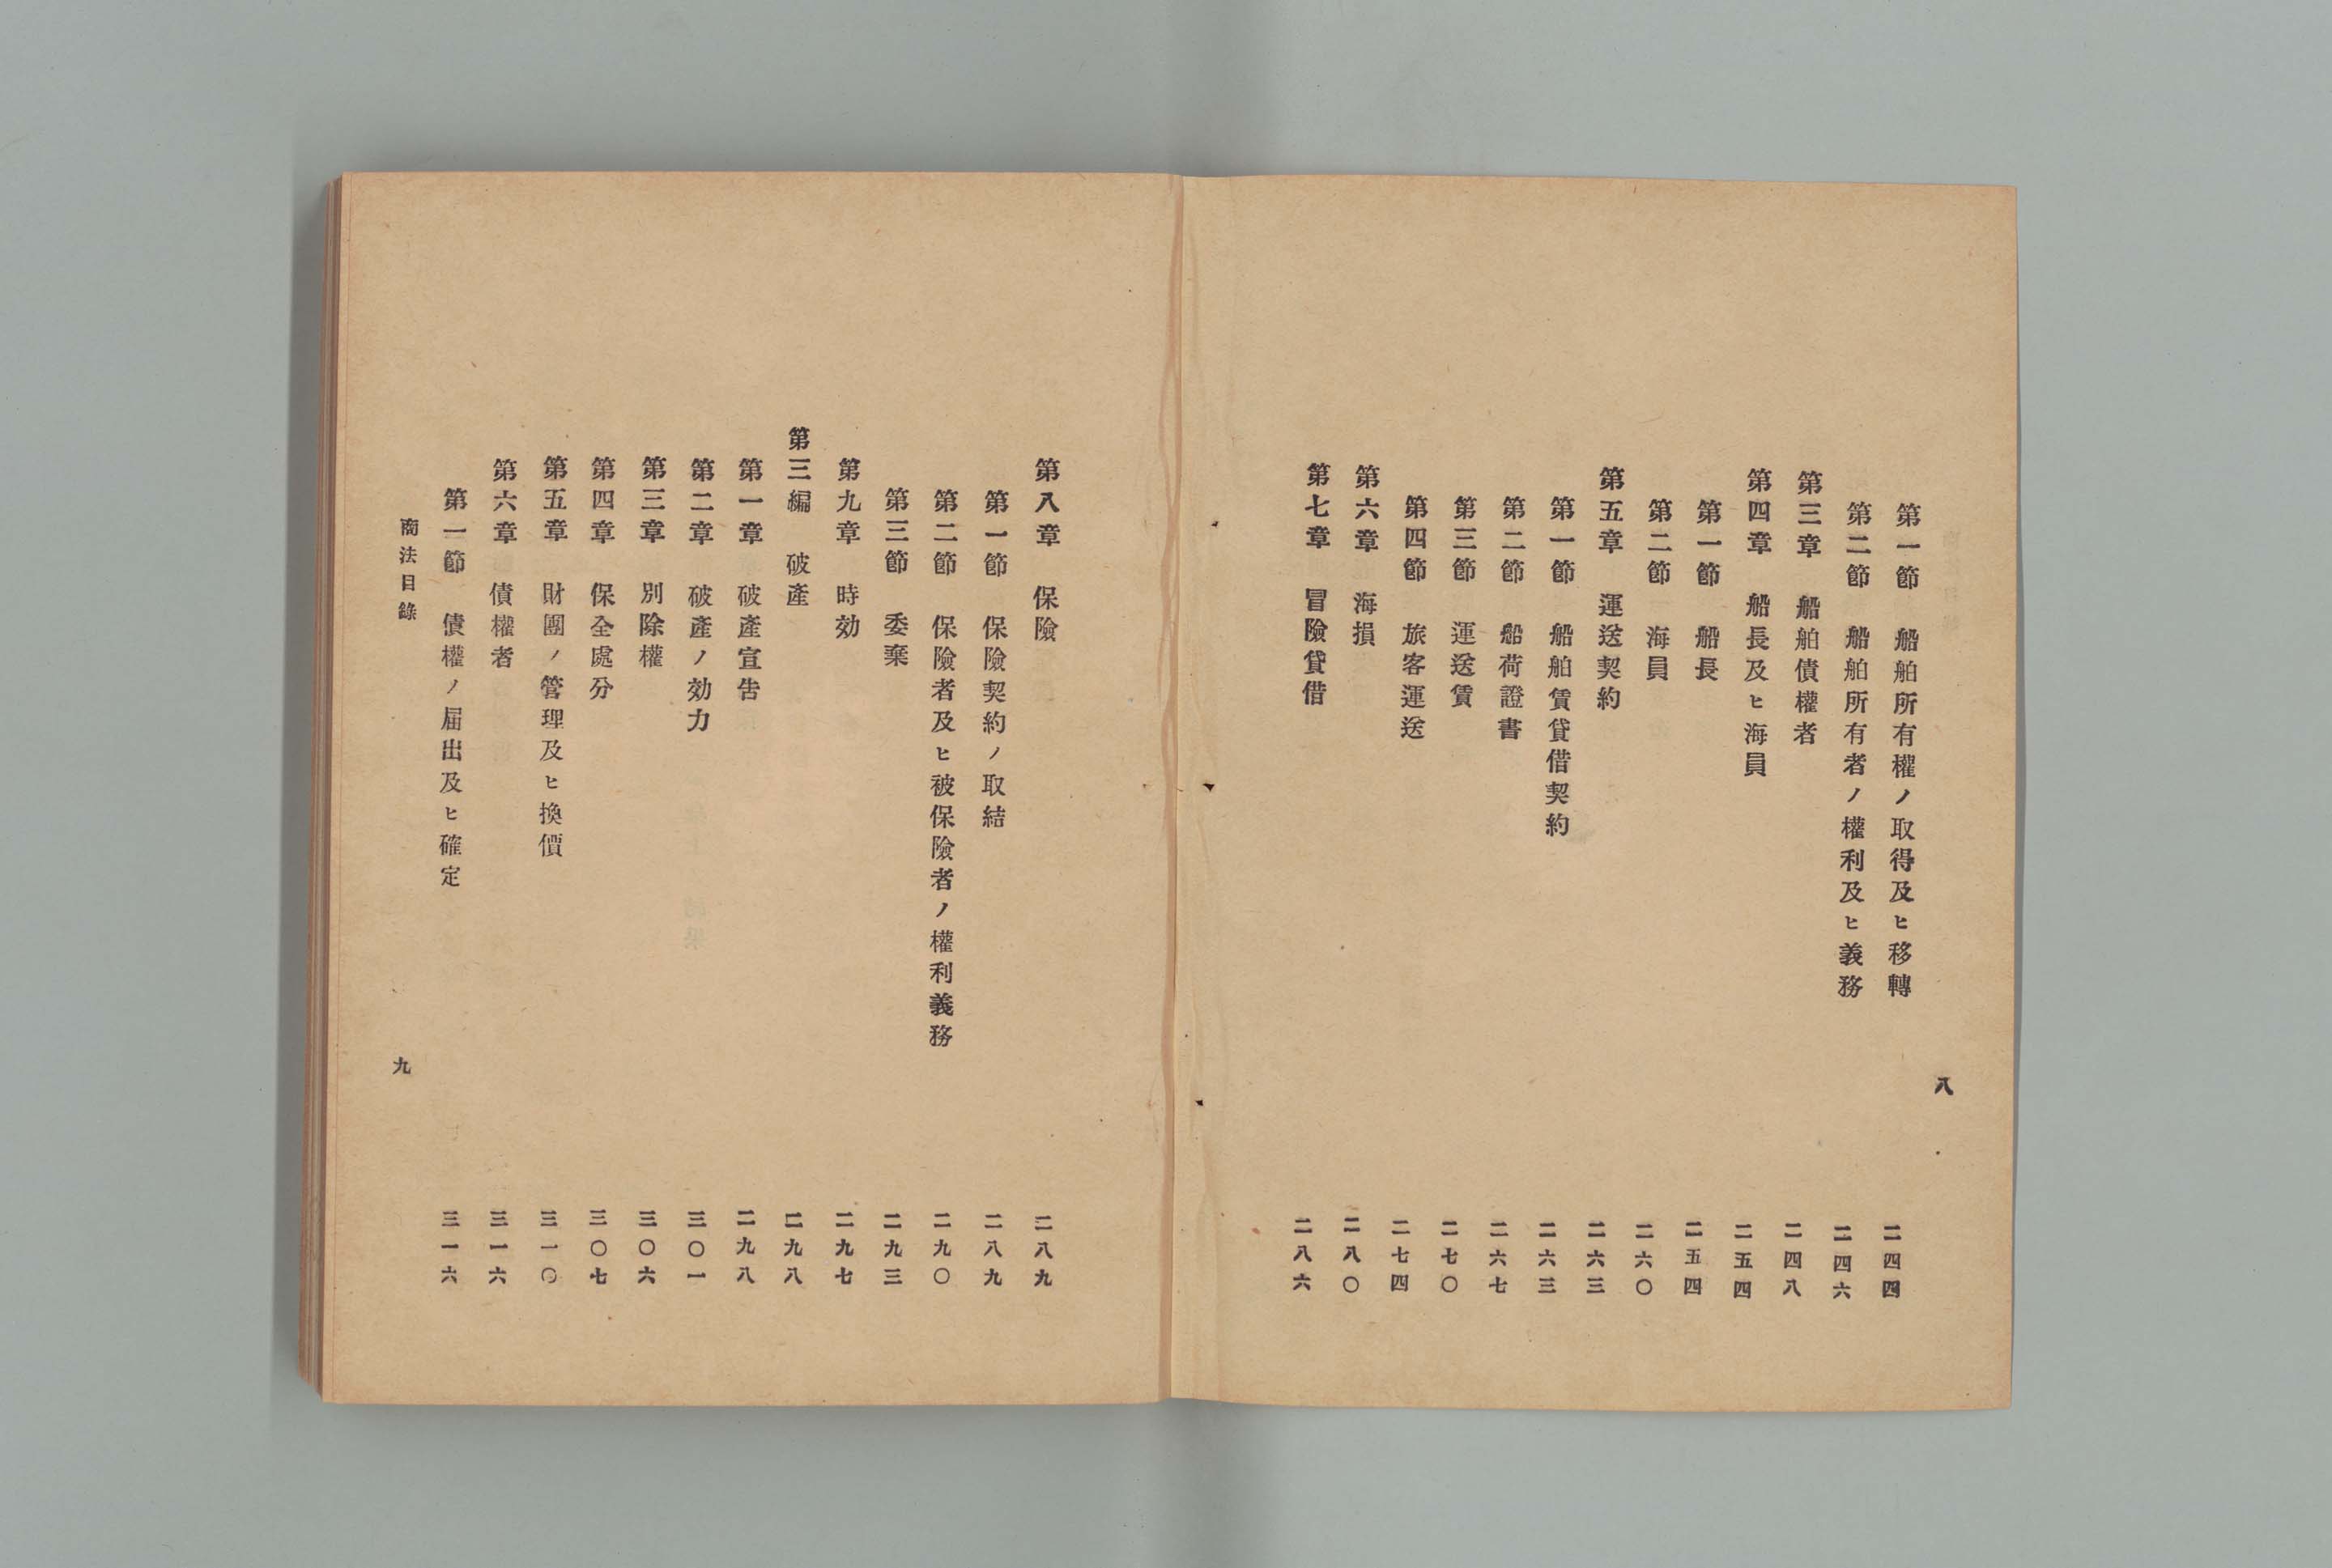 八
第一節　船舶所有權ノ取得及ヒ移轉　二四四
第二節　船舶所有者ノ權利及ヒ義務　二四六
第三章　船舶債權者　二四八
第四章　船長及ヒ海員　二五四
第一節　船長　二五四
第二節　海員　二六〇
第五章　運送契約　二六三
第一節　船舶賃貸借契約　二六三
第二節　船荷證書　二六七
第三節　運送賃　二七〇
第四節　旅客運送　二七四
第六章　海損　二八〇
第七章　冒險貸借　二八六
第八章　保險　二八九
第一節　保險契約ノ取結　二八九
第二節　保險者及ヒ被保險者ノ權利義務　二九〇
第三節　委棄　二九三
第九章　時効　二九七
第三編　破產　二九八
第一章　破產宣告　二九八
第二章　破產ノ効力　三〇一
第三章　別除權　三〇六
第四章　保全處分　三〇七
第五章　財團ノ管理及ヒ換價　三一〇
第六章　債權者　三一六
第一節　債權ノ届出及ヒ確定　三一六
商法目錄　九